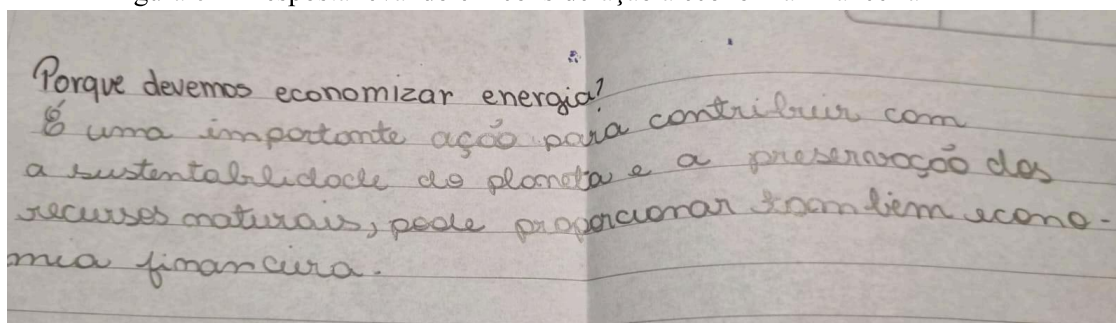 Porque devemos economizar energia?
É uma importante ação para contribuir com
a sustentabilidade do planeta e a preservação dos
recursos naturais, pode proporcionar também econo-
mia financeira.